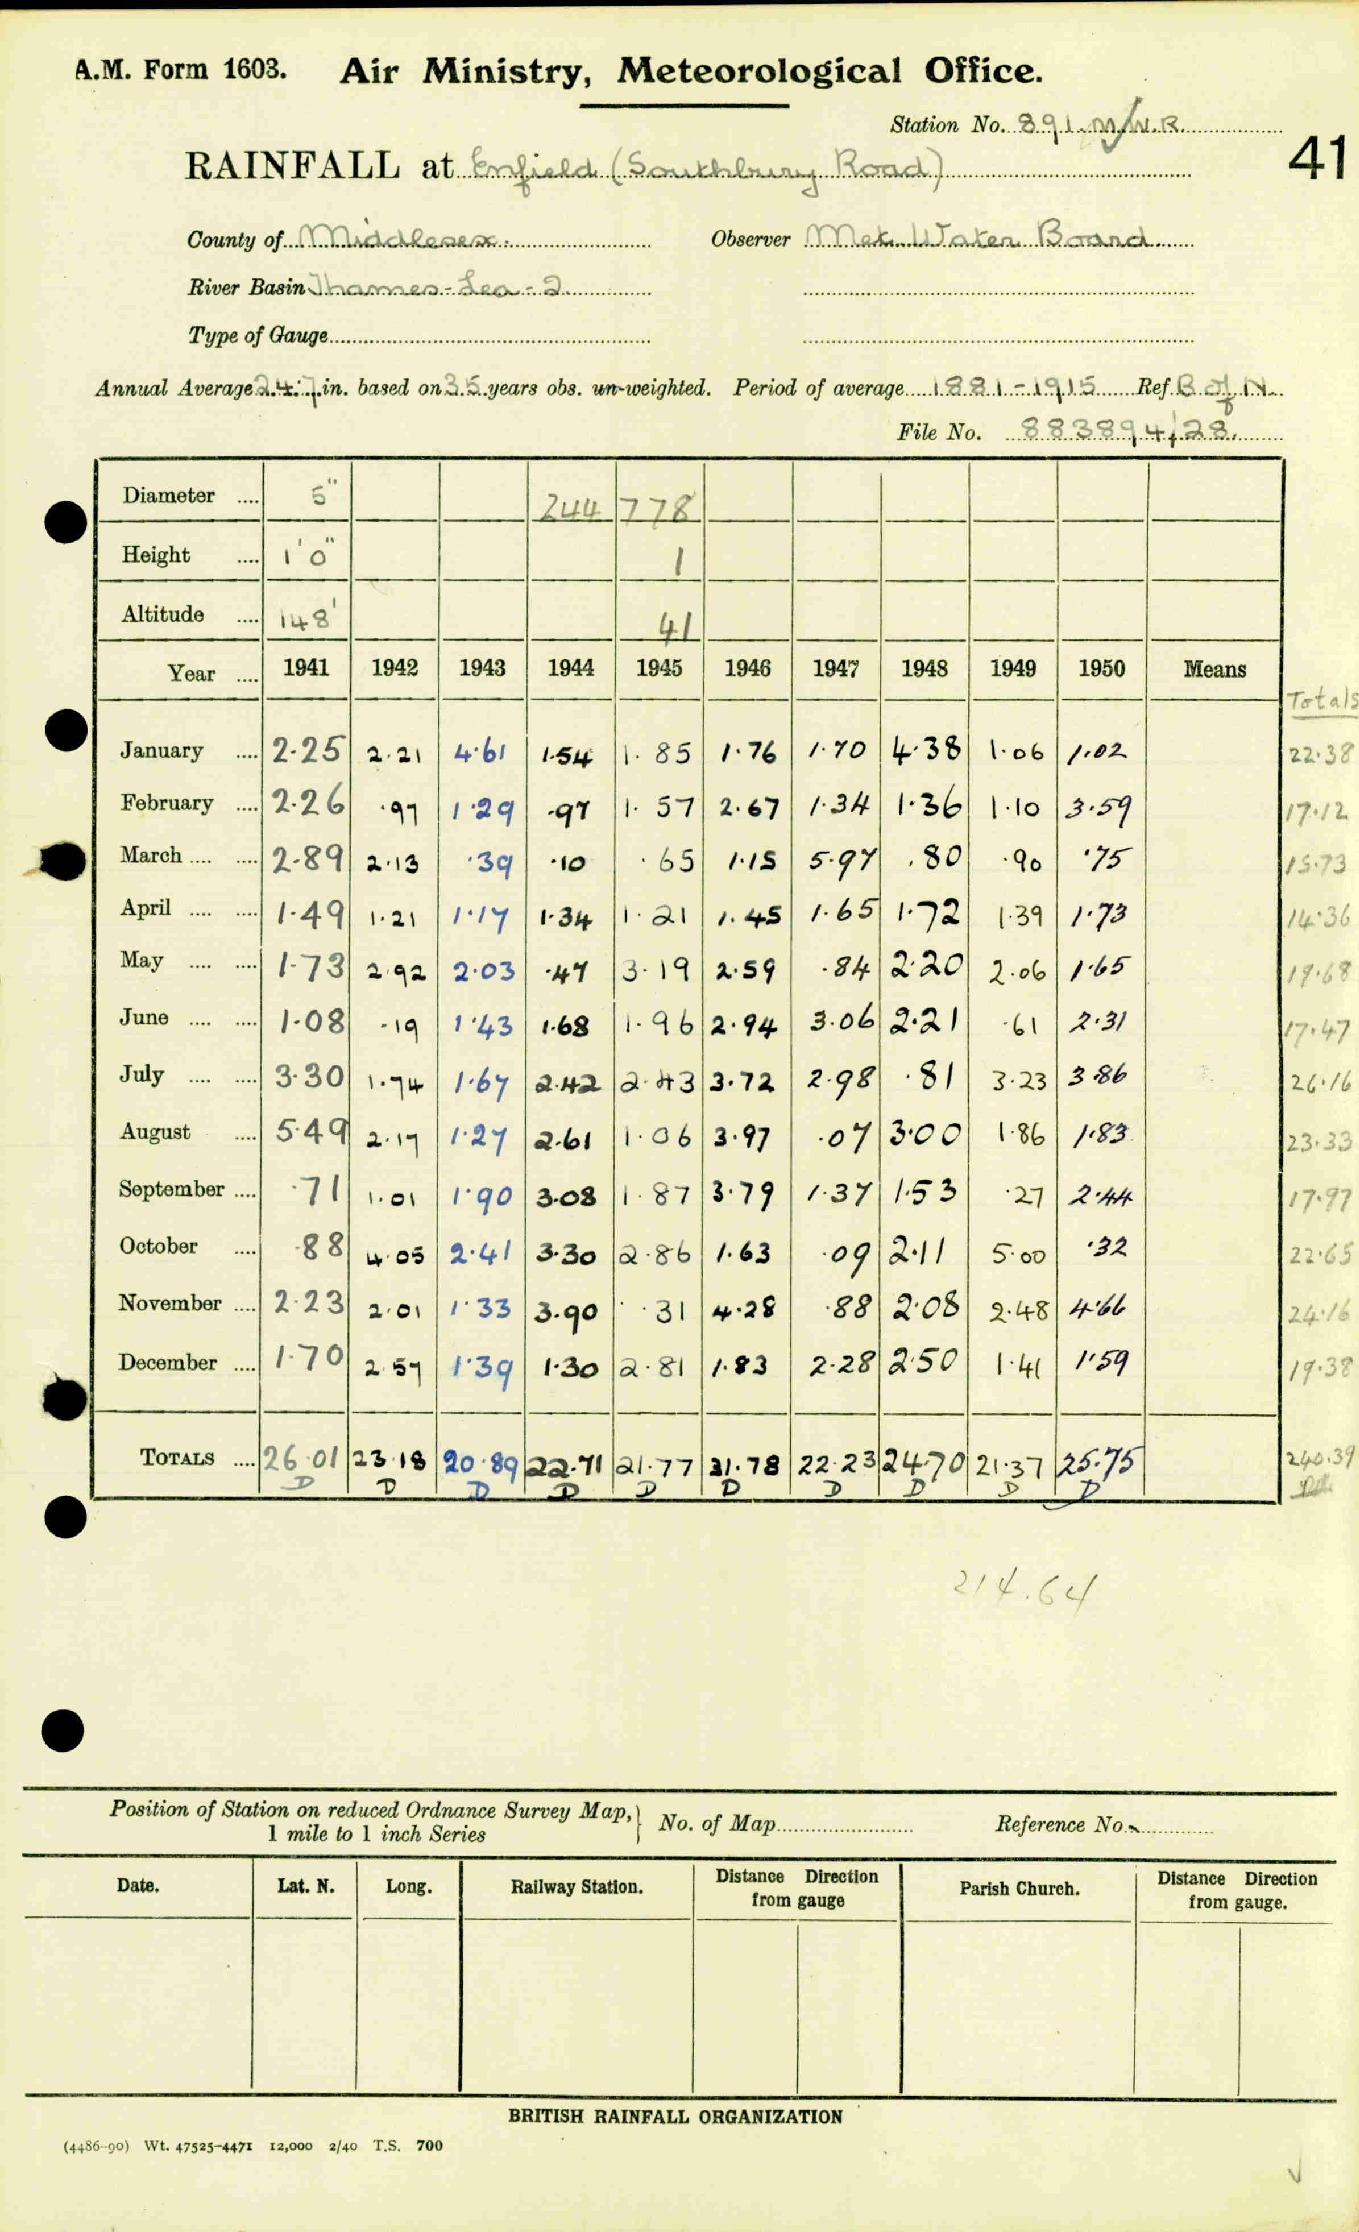 A.M. Form 1603. Air Ministry, Meteorological Office.
Station No. 891.M/W.R.
41
RAINFALL at Enfield (Southbury Road)
County of Middlesex. Observer Met. Water Board
River Basin Thames-Lea-2.
Type of Gauge
Annual Average 24.7 in. based on 35 years obs. un-weighted. Period of average 1881-1915 Ref. B of N.
File No. 883894/28.
Diameter .... 5" 244 778
Height .... 1'0" 1
Altitude .... 148' 41
Year .... 1941 1942 1943 1944 1945 1946 1947 1948 1949 1950 Means
Totals
January .... 2.25 2.21 4.61 1.54 1.85 1.76 1.70 4.38 1.06 1.02 22.38
February .... 2.26 .97 1.29 .97 1.57 2.67 1.34 1.36 1.10 3.59 17.12
March .... .... 2.89 2.13 .39 .10 .65 1.15 5.97 .80 .90 .75 15.73
April .... .... 1.49 1.21 1.17 1.34 1.21 1.45 1.65 1.72 1.39 1.73 14.36
May .... .... 1.73 2.92 2.03 .47 3.19 2.59 .84 2.20 2.06 1.65 19.68
June .... .... 1.08 .19 1.43 1.68 1.96 2.94 3.06 2.21 .61 2.31 17.47
July .... .... 3.30 1.74 1.67 2.42 2.43 3.72 2.98 .81 3.23 3.86 26.16
August .... 5.49 2.17 1.27 2.61 1.06 3.97 .07 3.00 1.86 1.83 23.33
September .... .71 1.01 1.90 3.08 1.87 3.79 1.37 1.53 .27 2.44 17.97
October .... .88 4.05 2.41 3.30 2.86 1.63 .09 2.11 5.00 .32 22.65
November .... 2.23 2.01 1.33 3.90 .31 4.28 .88 2.08 2.48 4.66 24.16
December .... 1.70 2.57 1.39 1.30 2.81 1.83 2.28 2.50 1.41 1.59 19.38
TOTALS .... 26.01 23.18 20.89 22.71 21.77 31.78 22.23 24.70 21.37 25.75 240.39
D D D D D D D D D D
214.64
Position of Station on reduced Ordnance Survey Map, } No. of Map Reference No.
1 mile to 1 inch Series
Date. Lat. N. Long. Railway Station. Distance Direction from gauge Parish Church. Distance Direction from gauge.
BRITISH RAINFALL ORGANIZATION
(4486-90) Wt. 47525-4471 12,000 2/40 T.S. 700